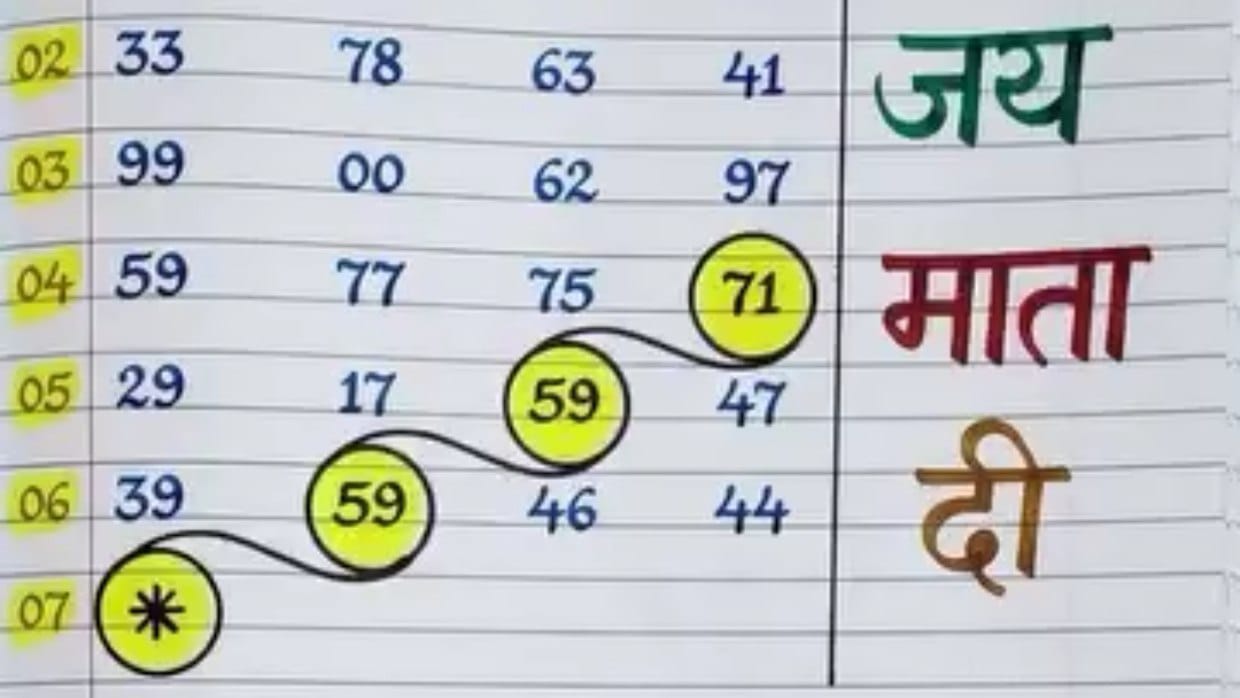 02 33 78 63 41 जय
03 99 00 62 97
04 59 77 75 71 माता
05 29 17 59 47
06 39 59 46 44 दी
07 *